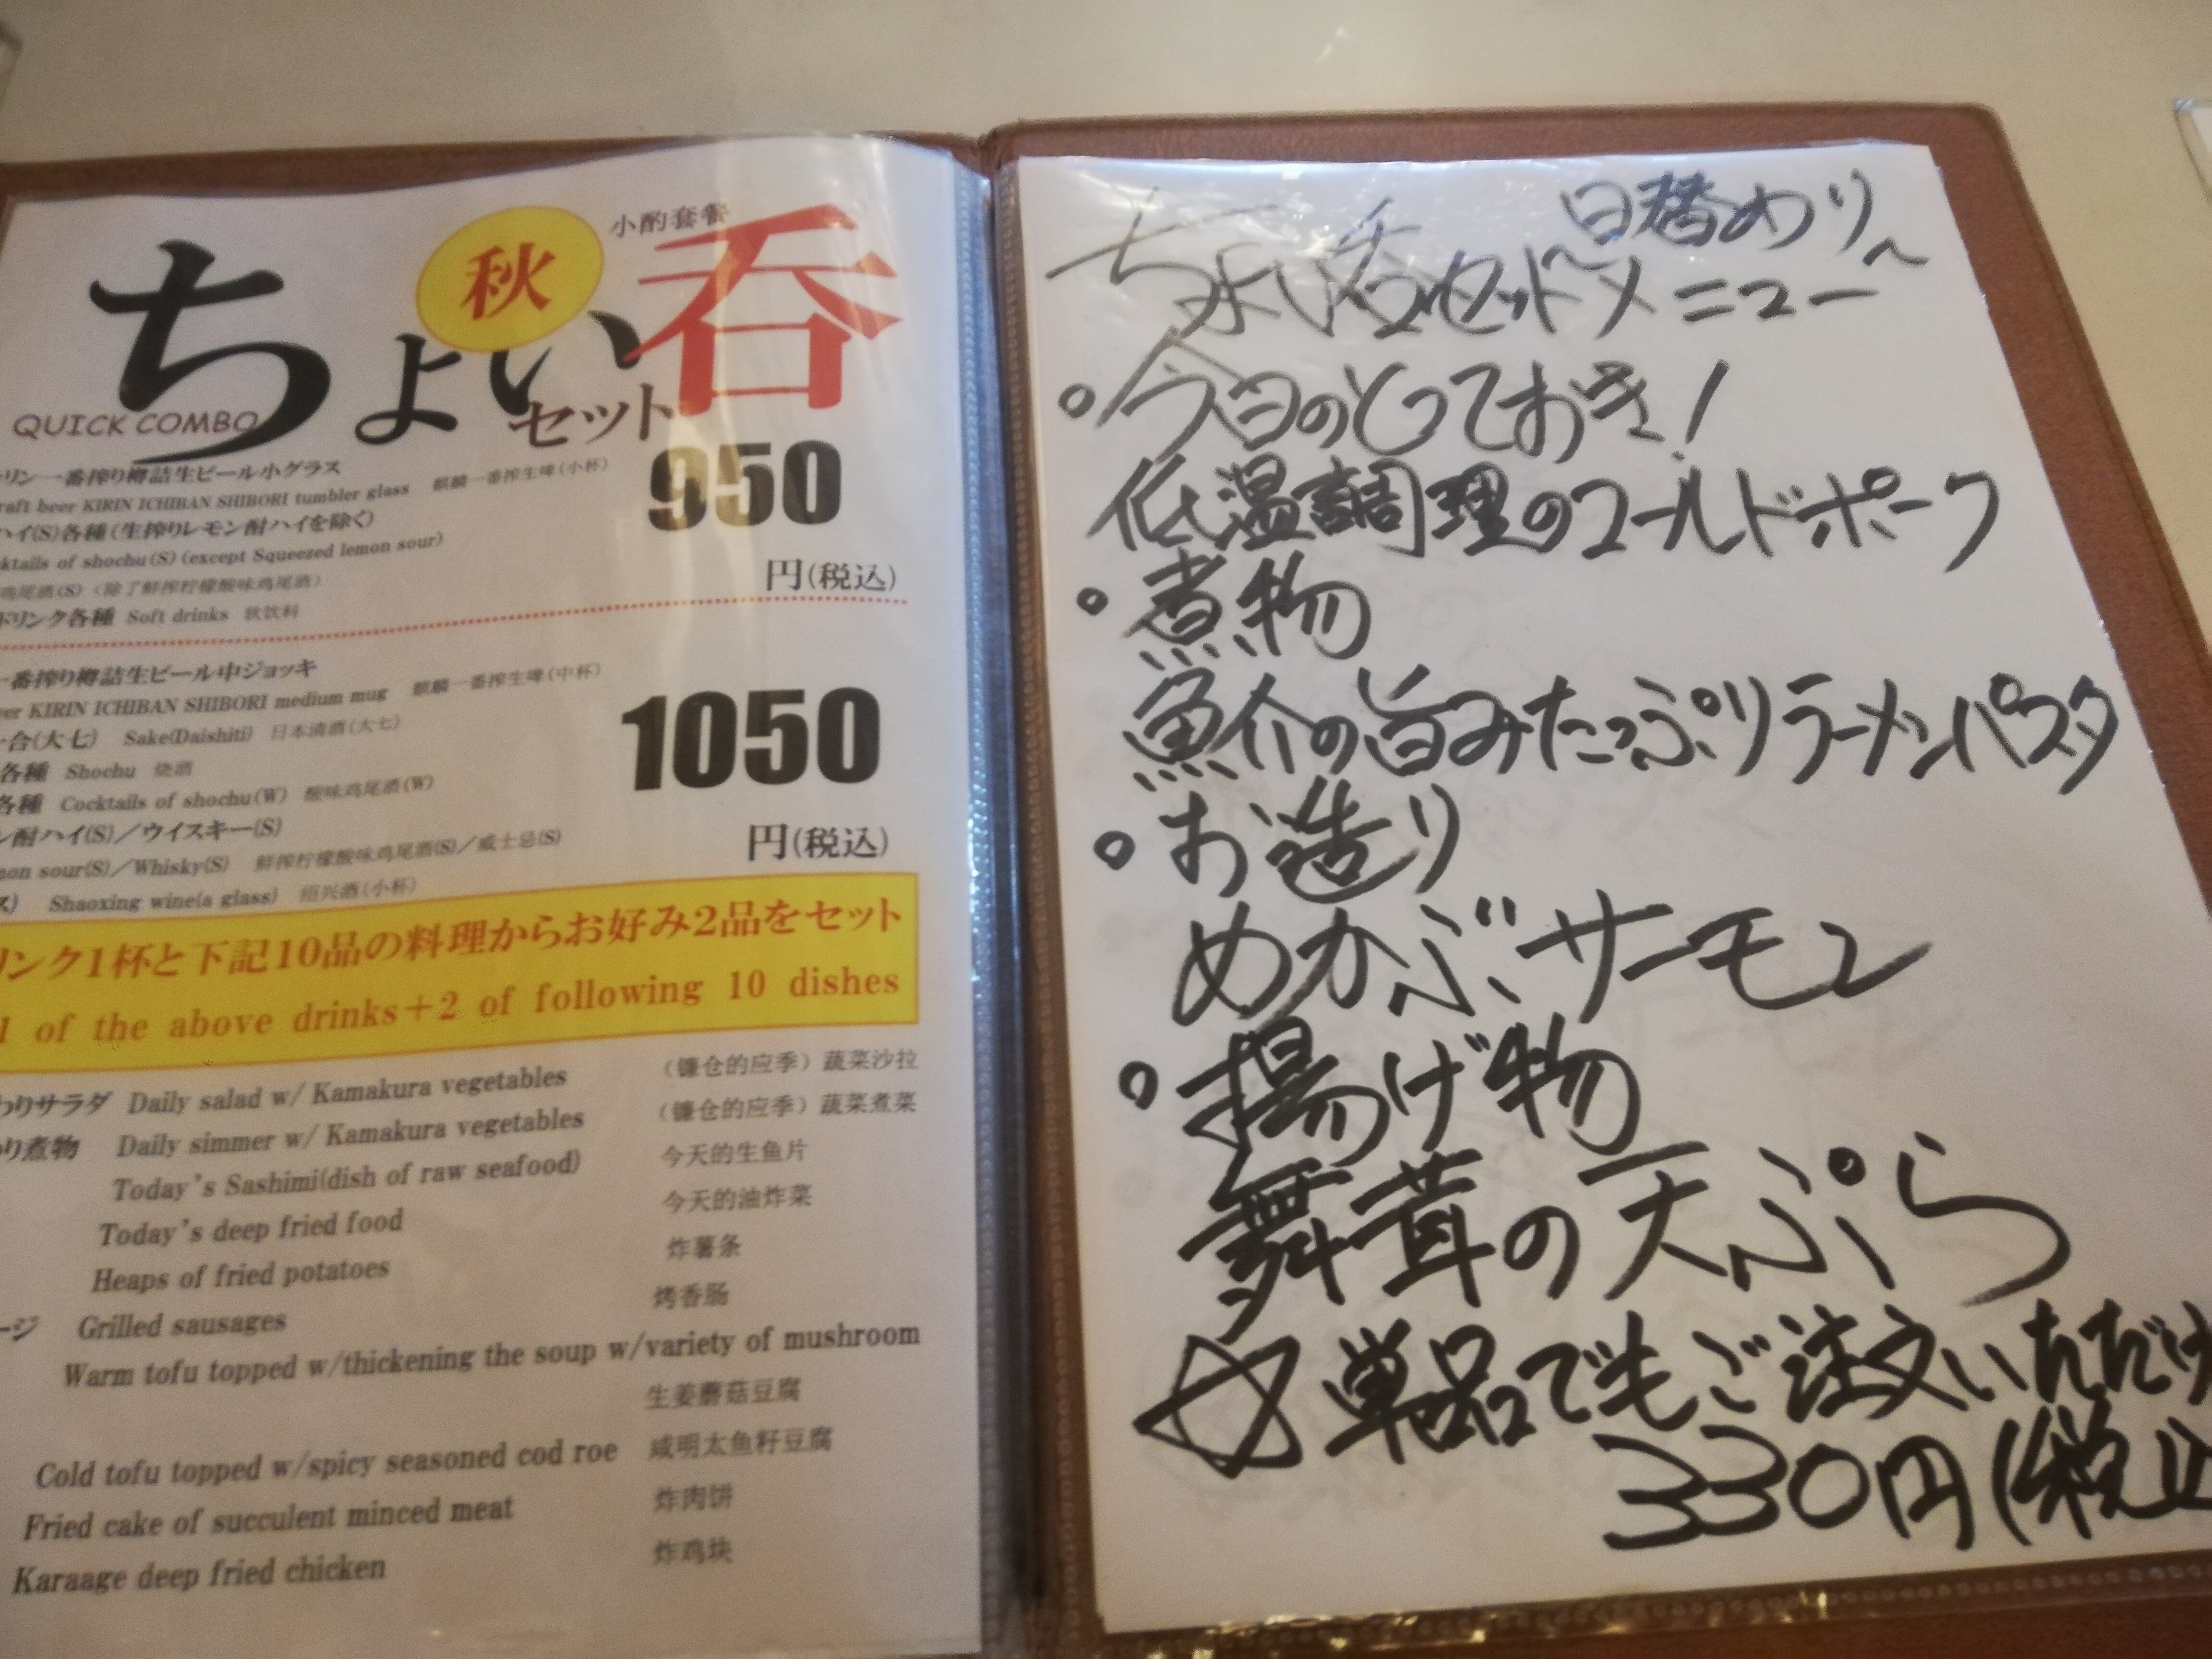 小酌套餐
秋
ちょい呑
セット
QUICK COMBO
リン一番搾り樽詰生ビール小グラス
raft beer KIRIN ICHIBAN SHIBORI tumbler glass 麒麟一番搾生啤(小杯)
ハイ(S)各種(生搾りレモン酎ハイを除く)
ktails of shochu(S)(except Squeezed lemon sour)
鸡尾酒(S)(除了鲜搾柠檬酸味鸡尾酒)
ドリンク各種 Soft drinks 软饮料
950
円(税込)
一番搾り樽詰生ビール中ジョッキ
eer KIRIN ICHIBAN SHIBORI medium mug 麒麟一番搾生啤(中杯)
一合(大七) Sake(Daishiti) 日本清酒(大七)
各種 Shochu 烧酒
各種 Cocktails of shochu(W) 酸味鸡尾酒(W)
ン酎ハイ(S)/ウイスキー(S)
mon sour(S)/Whisky(S) 鲜搾柠檬酸味鸡尾酒(S)/威士忌(S)
ス) Shaoxing wine(a glass) 绍兴酒(小杯)
1050
円(税込)
リンク1杯と下記10品の料理からお好み2品をセット
1 of the above drinks+2 of following 10 dishes
わりサラダ Daily salad w/ Kamakura vegetables (镰仓的应季)蔬菜沙拉
り煮物 Daily simmer w/ Kamakura vegetables (镰仓的应季)蔬菜煮菜
Today's Sashimi(dish of raw seafood) 今天的生鱼片
Today's deep fried food 今天的油炸菜
Heaps of fried potatoes 炸薯条
ージ Grilled sausages 烤香肠
Warm tofu topped w/thickening the soup w/variety of mushroom
生姜蘑菇豆腐
Cold tofu topped w/spicy seasoned cod roe 咸明太鱼籽豆腐
Fried cake of succulent minced meat 炸肉饼
Karaage deep fried chicken 炸鸡块
ちょい呑セットメニュー
〜日替わり〜
・今日のとっておき!
低温調理のコールドポーク
・煮物
魚介の旨みたっぷりラーメンパスタ
・お造り
めかぶサーモン
・揚げ物
舞茸の天ぷら
☆単品でもご注文いただけ
330円(税込